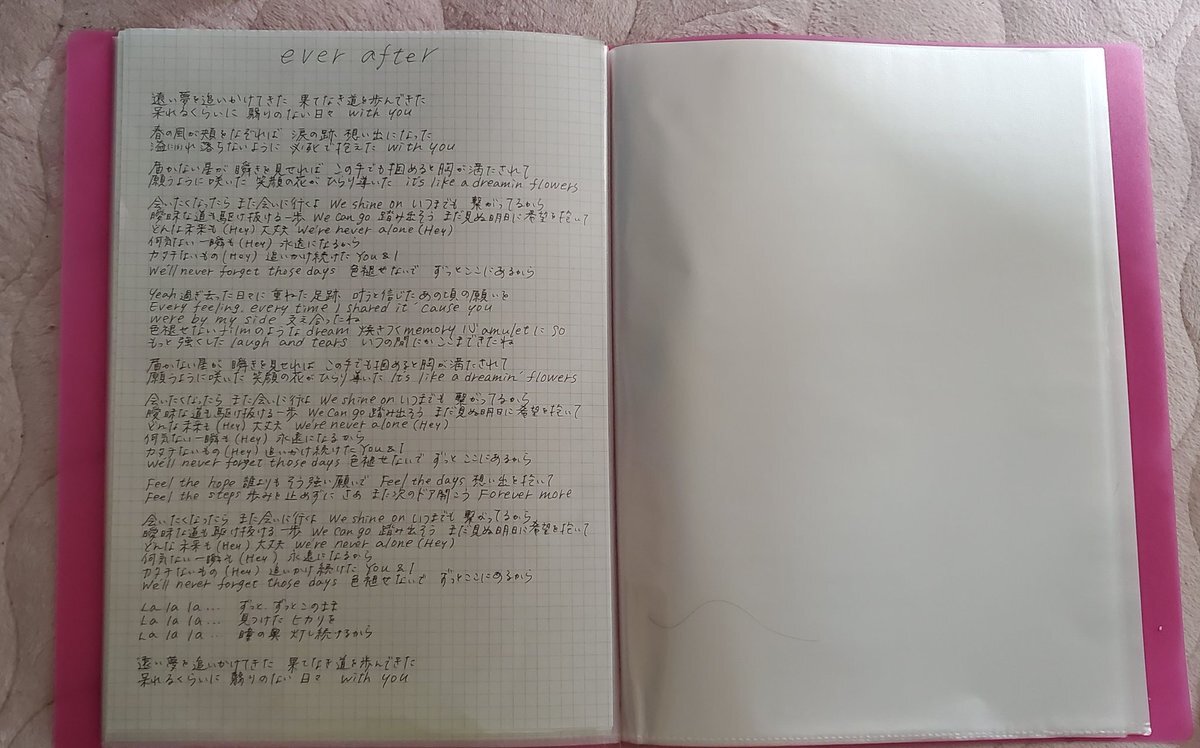 ever after
遠い夢を追いかけてきた 果てなき道を歩んできた
呆れるくらいに 翳りのない日々 with you
春の風が頬をなぞれば 涙の跡 想い出になった
溢れ落ちないように 必死で抱えた with you
届かない星が 瞬きを見せれば この手でも掴めると胸が満たされて
願うように咲いた 笑顔の花が ひらり導いた it's like a dreamin flowers
会いたくなったら また会いに行くよ We shine on いつまでも 繋がってるから
曖昧な道も駆け抜ける一歩 We can go 踏み出そう まだ見ぬ明日に希望を抱いて
どんな未来も (Hey) 大丈夫 we're never alone (Hey)
何気ない一瞬も (Hey) 永遠になるから
カタチないもの (Hey) 追いかけ続けた You & I
We'll never forget those days 色褪せないで ずっとここにあるから
Yeah 過ぎ去った日々に 重ねた足跡 叶うと信じた あの頃の願いを
Every feeling, every time I shared it 'cause you
were by my side 支え合ったね
色褪せないfilmのような dream 焼きつくmemory 心 amuletに so
もっと強くした laugh and tears いつの間にかここまできたね
届かない星が 瞬きを見せれば この手でも掴めると胸が満たされて
願うように咲いた 笑顔の花がひらり導いた It's like a dreamin' flowers
会いたくなったら また会いに行くよ We shine on いつまでも 繋がってるから
曖昧な道も駆け抜ける一歩 We can go 踏み出そう まだ見ぬ明日に希望を抱いて
どんな未来も (Hey) 大丈夫 we're never alone (Hey)
何気ない一瞬も (Hey) 永遠になるから
カタチないもの (Hey) 追いかけ続けた You & I
We'll never forget those days 色褪せないで ずっとここにあるから
Feel the hope 誰よりも そう強い願いで Feel the days 想い出を抱いて
Feel the steps 歩みを止めずに さあ また次のドア開こう Forever more
会いたくなったら また会いに行くよ We shine on いつまでも 繋がってるから
曖昧な道も駆け抜ける一歩 We can go 踏み出そう まだ見ぬ明日に希望を抱いて
どんな未来も (Hey) 大丈夫 we're never alone (Hey)
何気ない一瞬も (Hey) 永遠になるから
カタチないもの (Hey) 追いかけ続けた You & I
We'll never forget those days 色褪せないで ずっとここにあるから
La la la... ずっと、ずっとこのまま
La la la... 見つけた ヒカリを
La la la... 瞳の奥 灯し続けるから
遠い夢を追いかけてきた 果てなき道を歩んできた
呆れるくらいに 翳りのない 日々 with you